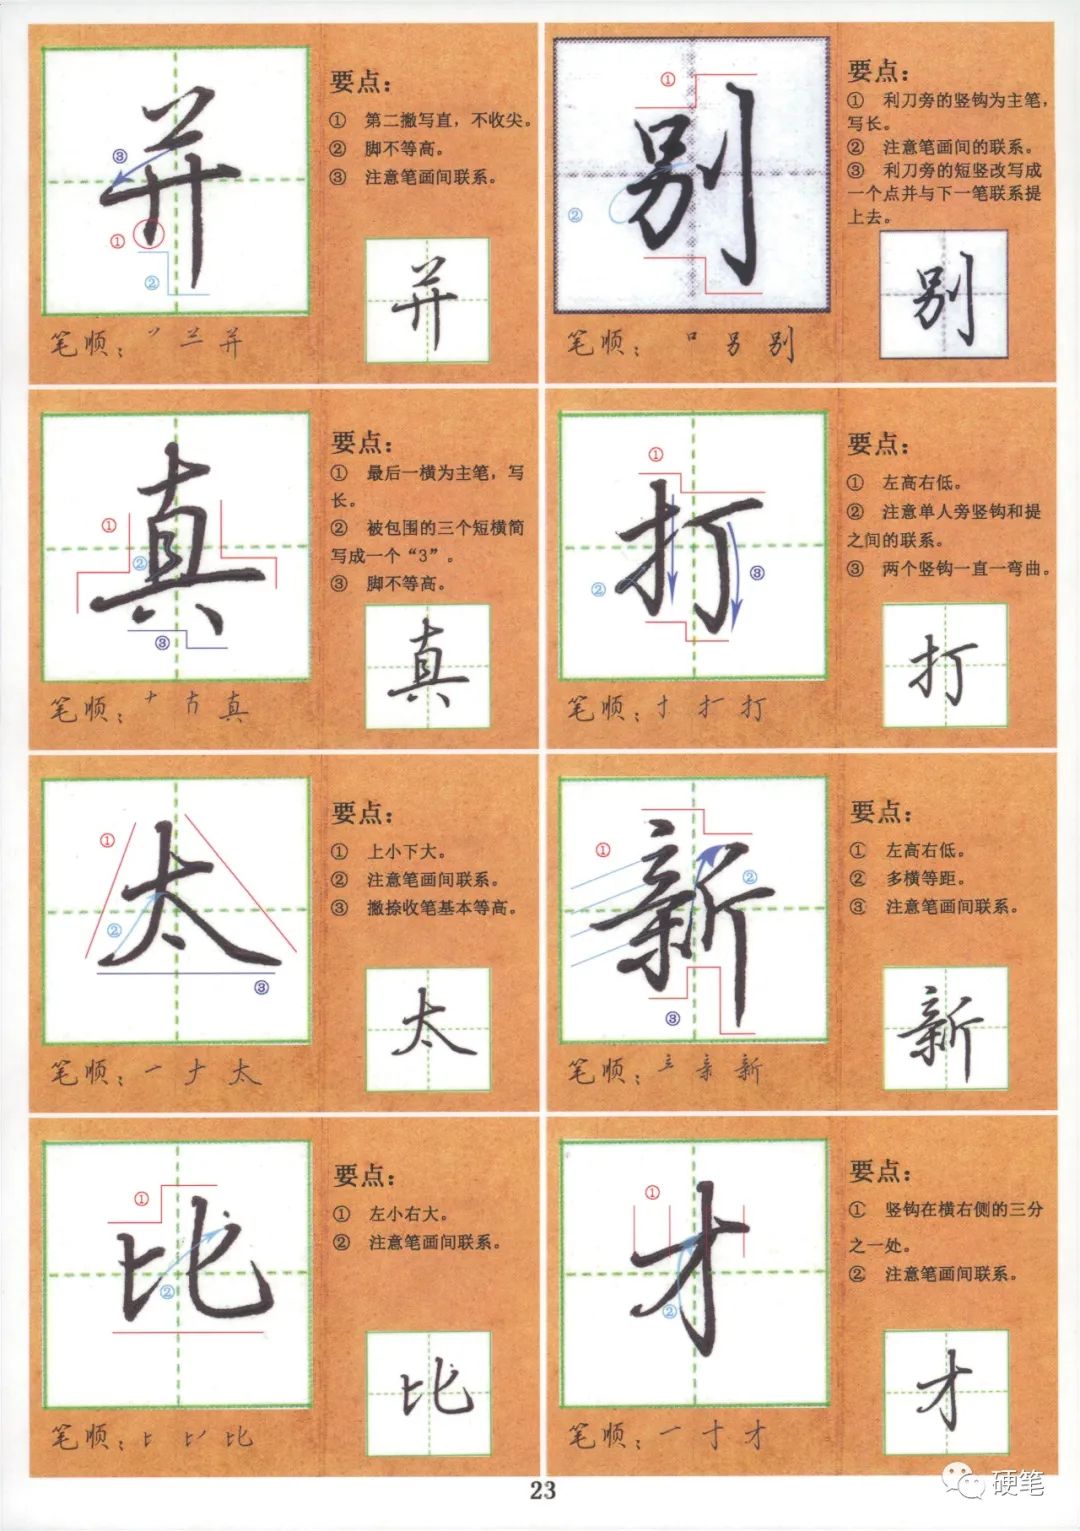 并
要点：
① 第二撇写直，不收尖。
② 脚不等高。
③ 注意笔画间联系。
③
①
②
并
笔顺： 丷 亠 并
别
要点：
① 利刀旁的竖钩为主笔，
写长。
② 注意笔画间的联系。
③ 利刀旁的短竖改写成
一个点并与下一笔联系提
上去。
①
②
别
笔顺： 口 另 别
真
要点：
① 最后一横为主笔，写
长。
② 被包围的三个短横简
写成一个“3”。
③ 脚不等高。
①
②
③
真
笔顺： 十 真
打
要点：
① 左高右低。
② 注意单人旁竖钩和提
之间的联系。
③ 两个竖钩一直一弯曲。
①
②
③
打
笔顺： 扌 打
太
要点：
① 上小下大。
② 注意笔画间联系。
③ 撇捺收笔基本等高。
①
②
③
太
笔顺： 一 ナ 太
新
要点：
① 左高右低。
② 多横等距。
③ 注意笔画间联系。
①
②
③
新
笔顺： 立 亲 新
比
要点：
① 左小右大。
② 注意笔画间联系。
①
②
比
笔顺： 比
才
要点：
① 竖钩在横右侧的三分
之一处。
② 注意笔画间联系。
①
②
才
笔顺： 一 寸 才
23
硬笔